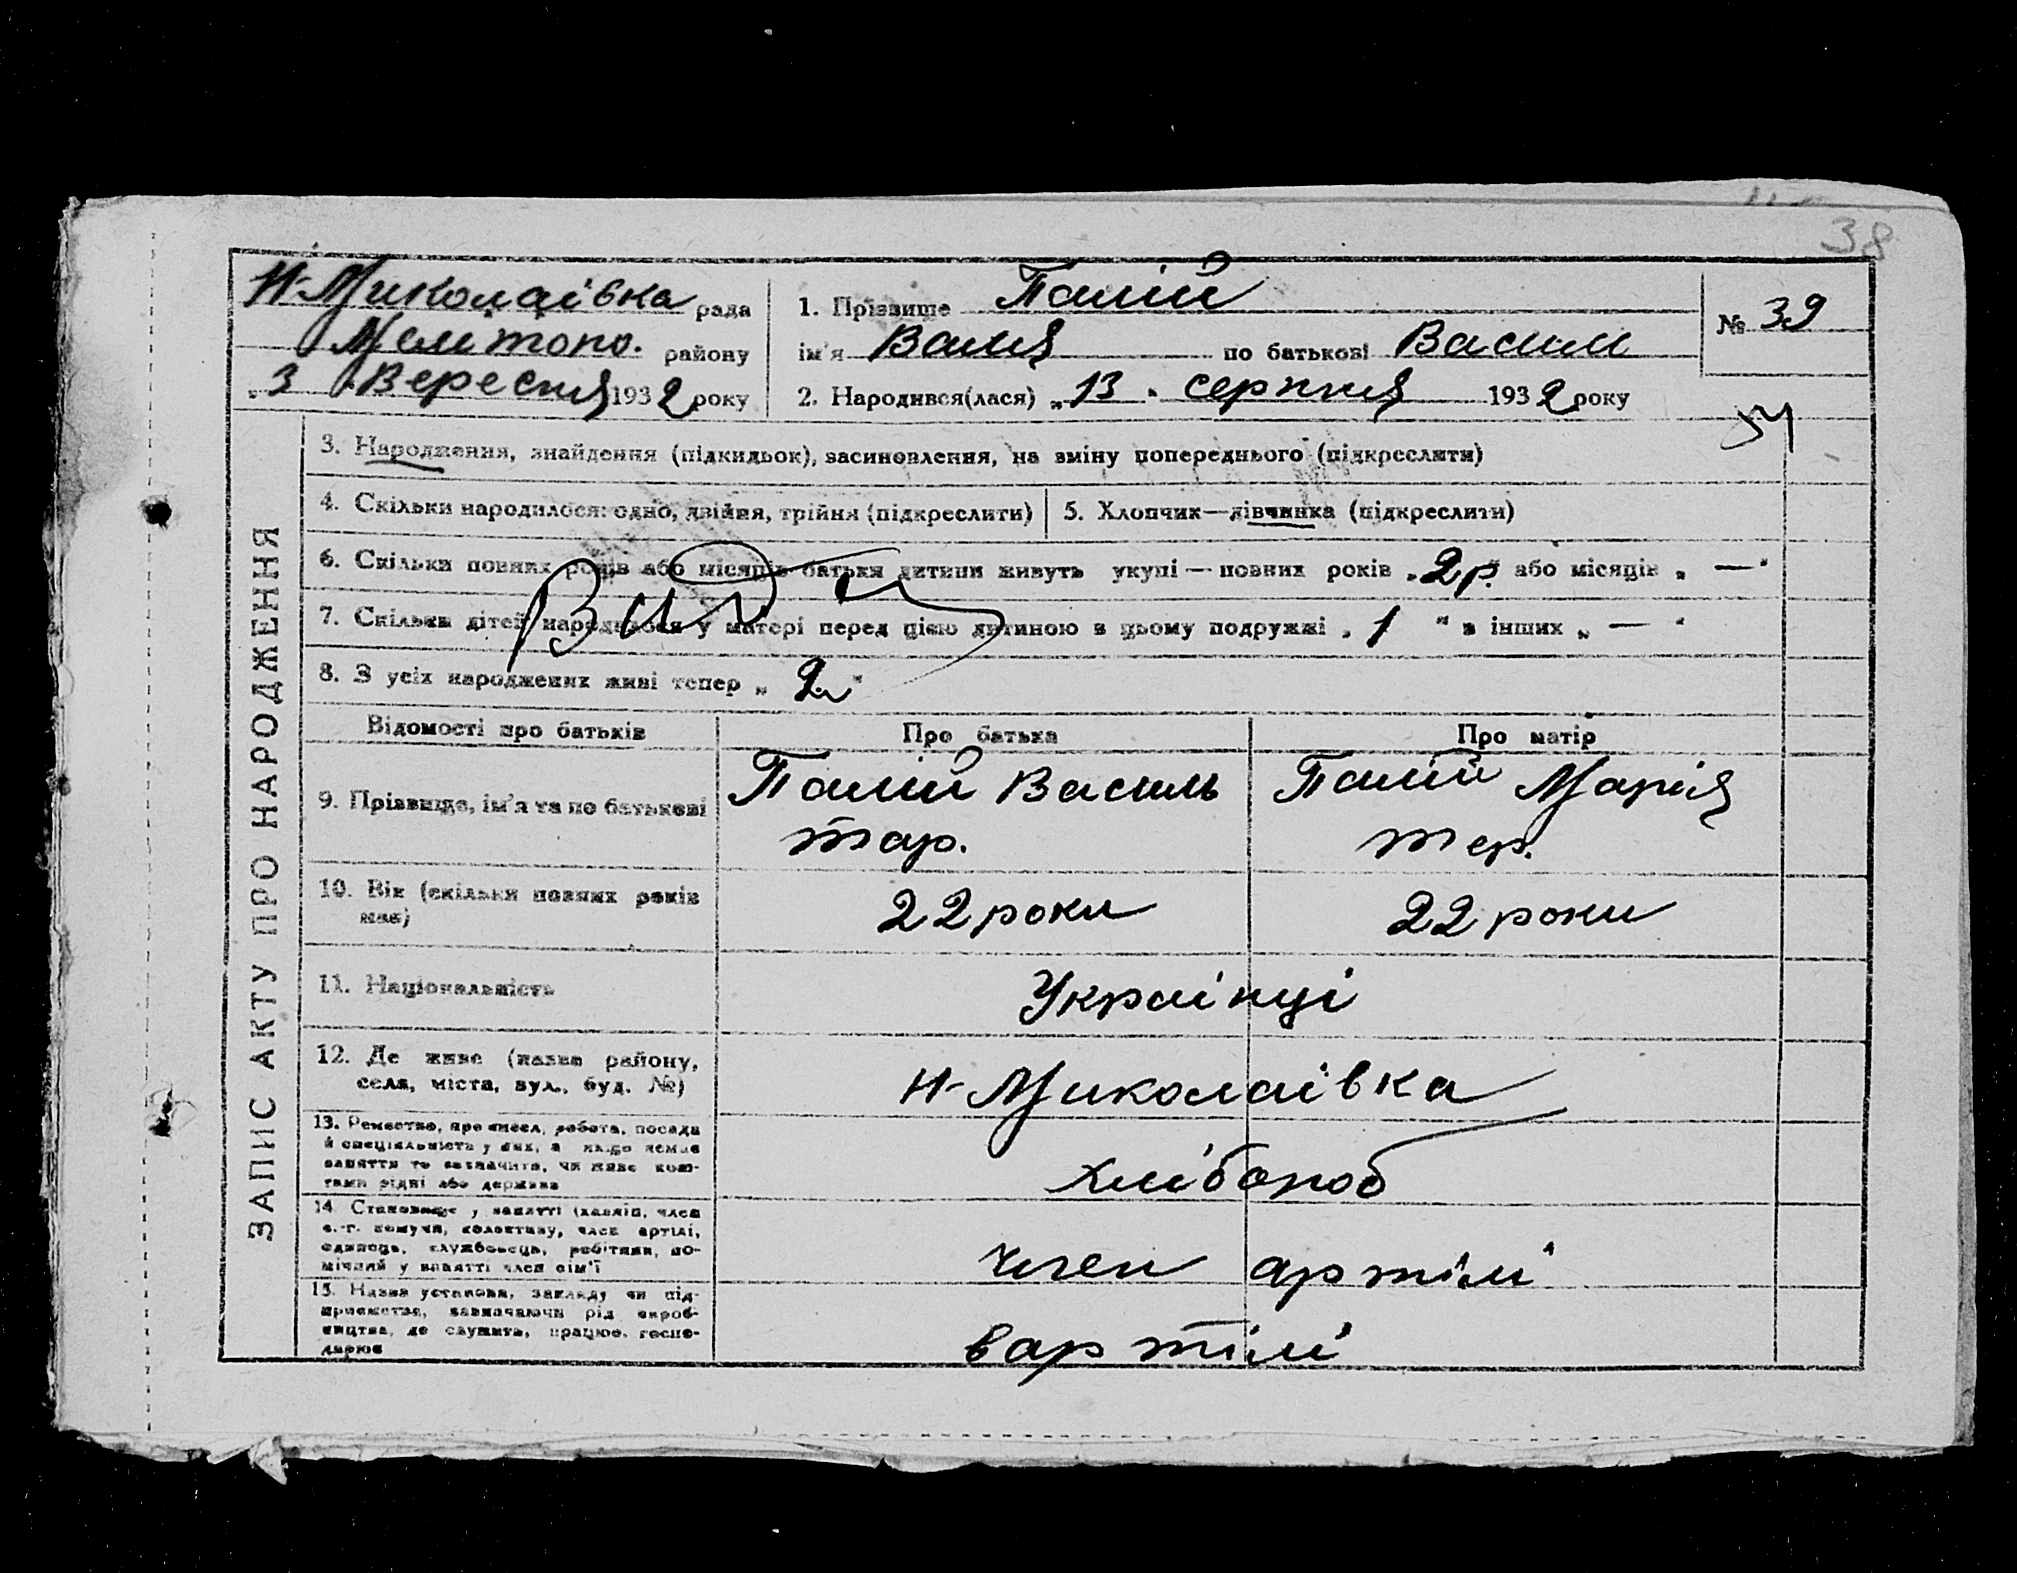 38
Н-Миколаівка рада
Мелітопо. району
„3 Вересня 1932 року
1. Прізвище Палій
ім'я Валя по батькові Васили
2. Народився(лася) „13" серпня 1932 року
№ 39
ЗАПИС АКТУ ПРО НАРОДЖЕННЯ
3. Народження, знайдення (підкидьок), засиновлення, на зміну попереднього (підкреслити)
4. Скільки народилося: одно, двійня, трійня (підкреслити)
5. Хлопчик—дівчинка (підкреслити)
6. Скільки повних років або місяців батьки дитини живуть укупі — повних років „2 р." або місяців „—"
7. Скільки дітей народилося у матері перед цією дитиною в цьому подружжі „1" в інших „—"
8. З усіх народжених живі тепер „2"
Відомості про батьків
Про батька
Про матір
9. Прізвище, ім'я та по батькові
Палій Василь
тар.
Палій Марія
тер.
10. Вік (скільки повних років
має)
22 роки
22 роки
11. Національність
Украінці
12. Де живе (назва району,
села, міста, вул., буд. №)
Н-Миколаівка
13. Ремество, промисел, робота, посада
й спеціяльність у них, а якщо немає
заняття то зазначити, чи живе кош-
тами рідні або держави
хлібороб
14. Становище у занятті (хазяїн, член
с.-г. комуни, колективу, член артілі,
одинець, службовець, робітник, по-
мічний у занятті член сім'ї
член артілі
15. Назва установи, закладу чи під-
приємства, зазначаючи рід вироб-
ництва, де служить, працює, госпо-
дарює
вартілі